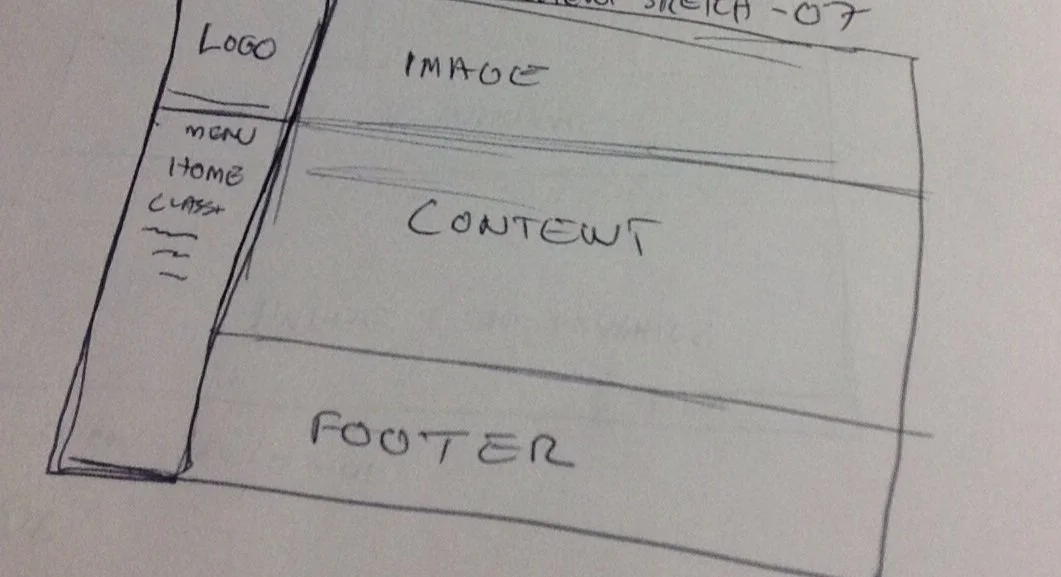 SKETCH -07
LOGO
IMAGE
MENU
HOME
CONTENT
FOOTER